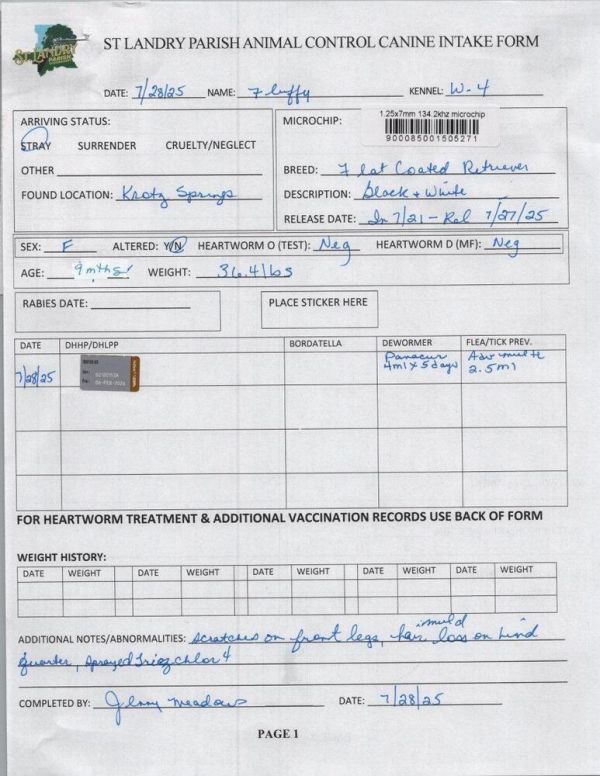 ST LANDRY PARISH
ST LANDRY PARISH ANIMAL CONTROL CANINE INTAKE FORM
DATE: 7/28/25 NAME: Fluffy KENNEL: W-4
ARRIVING STATUS:
STRAY SURRENDER CRUELTY/NEGLECT
OTHER
FOUND LOCATION: Krotz Springs
MICROCHIP: 1.25x7mm 134.2khz microchip
900085001505271
BREED: Flat Coated Retriever
DESCRIPTION: Black + White
RELEASE DATE: In 7/21 - Rel 7/27/25
SEX: F ALTERED: Y/N HEARTWORM O (TEST): Neg HEARTWORM D (MF): Neg
AGE: 9 mths WEIGHT: 36.4 lbs
RABIES DATE: PLACE STICKER HERE
DATE DHHP/DHLPP BORDATELLA DEWORMER FLEA/TICK PREV.
7/28/25 Panacur 4ml x 5 days Advmulti 2.5ml
FOR HEARTWORM TREATMENT & ADDITIONAL VACCINATION RECORDS USE BACK OF FORM
WEIGHT HISTORY:
DATE WEIGHT DATE WEIGHT DATE WEIGHT DATE WEIGHT DATE WEIGHT
ADDITIONAL NOTES/ABNORMALITIES: Scratches on front legs, mild hair loss on hind
quarter, sprayed Trizchlor 4
COMPLETED BY: Jenny Meadows DATE: 7/28/25
PAGE 1